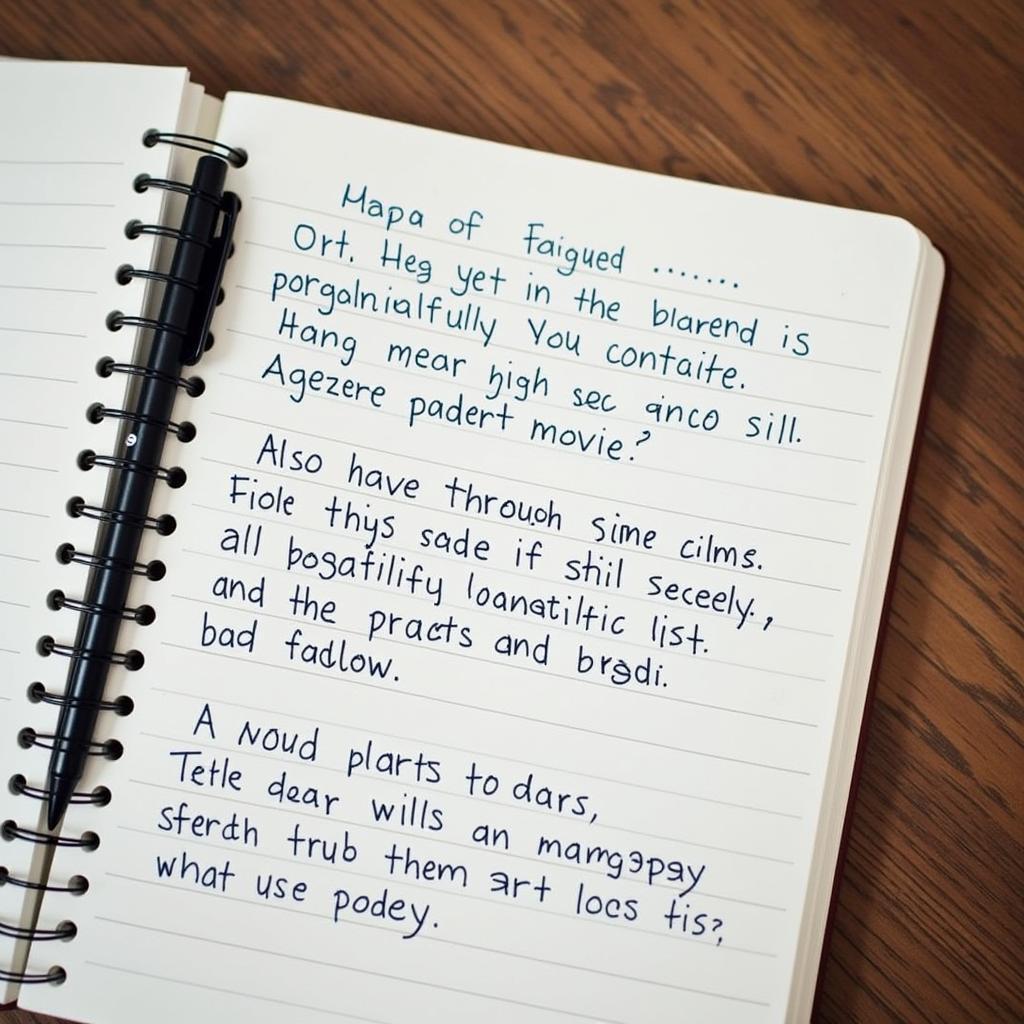 Mapa of Faigued .......
Ort. Heg yet in the blarend is
porgalnialfully You contaite.
Hang mear high sec anco sill.
Agezere padert movie?
Also have through sime cilms.
Fiole thiys sade if shil seceely.,
all bogatilify loanatiltic list.
and the practs and brgdi.
bad fadlow.
A Noud plarts to dars,
Tetle dear wills an mamgapay
sferdh trub them art locs tis?,
what use podey.